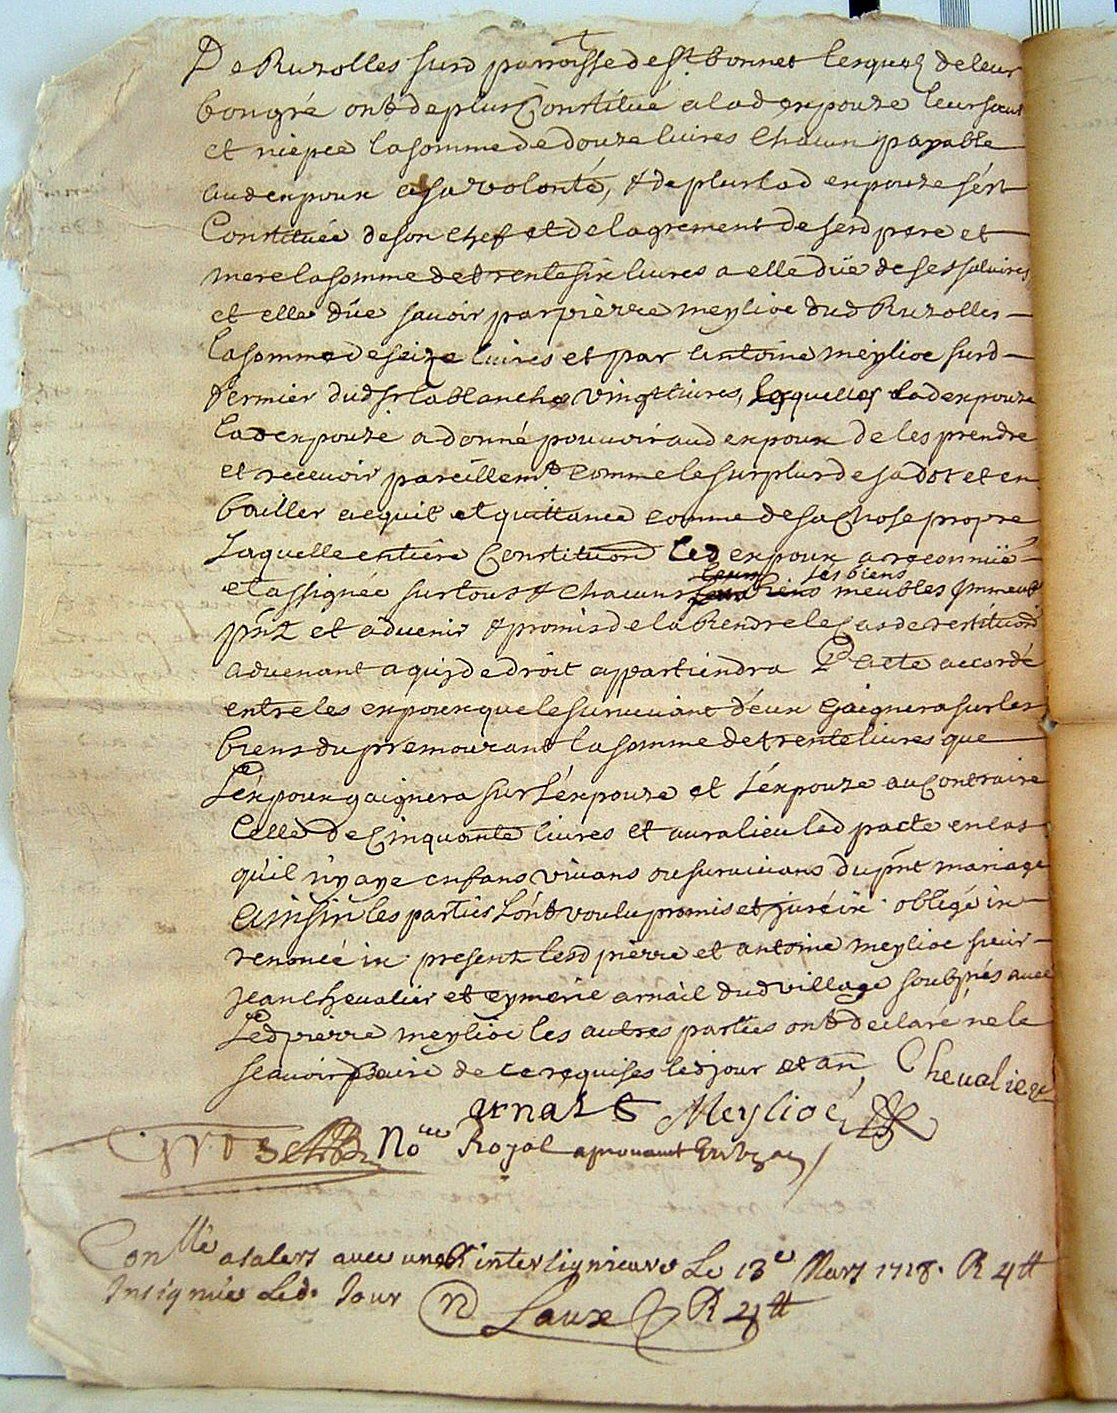 De Ruzolles surd parroisse de st bonnet lesquels de leur
bon gré ont de plus Constitué a lad expouze leur sœur
et niepce la somme de douze livres chacun payable
aud expoux a sa volonté, & de plus lad expouze s'est
Constituée de son chef et de lagrement de sesd pere et
mere la somme de trente six livres a elle düe de ses salaires
et elle düe savoir par pierre meylioc dud Ruzolles
la somme de seize livres et par antoine meylioc surd
fermier dud sr lablanche vingt livres, lesquelles lad expouze
lad expouze a donné pouvoir aud expoux de les prendre
et recevoir pareillemt comme le surplus de sa dot et en
bailler acquit et quittance comme de sa chose propre
Laquelle entiere Constitution led expoux a reconnüe
et assignée sur tous & chacuns ses biens meubles Immeubs
pnts et advenir & promis de la Rendre le Cas de restitution
advenant a qui de droit appartiendra Pacte accordé
entre les expoux que le survivant d'eux gaignera sur les
biens du premourant la somme de trente livres que
L'expoux gaignera sur L'expouze et L'expouze au Contraire
Celle de Cinquante livres et aura lieu led pacte en cas
qu'il n'y aye enfans vivans ou survivans du pnt mariage
Ainsin les parties L'ont voulu promis et juré in obligé in
renoncé in presentz lesd pierre et antoine meylioc sieur
jean chevalier et eymerie arnail dud village soubsnés avec
Led pierre meylioc les autres parties ont declaré ne le
scavoir faire de ce requises led jour et an Chevalier
arnal Meylioc
Nore Royal aprouvant
Conllé a salers avec une interlignieure Le 13e Mars 1718. R 4tt
Insignué Led. Jour Laux R 4tt